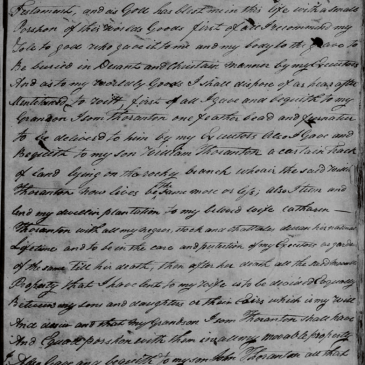 Testament, and as God has blest me in this life with a small
Porshon of this worlds Goods first of all I recommend my
Sole to god who gave it to me and my body to the grave to
Be buried in Desant and Christian manner by my Executors
And as to my worldly Goods I shall dispose of as hear after
Mentioned to witt, first of all I gave and bequith to my
Grandson Isom Thornton one feather bead and furniture
to be delived to him by my Executors Also I gave and
Bequith to my son William Thornton a certain track
of Land lying on the rocky branch whear the said Wm
Thornton now lives be the same more or less, also I
Lend my dwellin plantation to my belovid wife catharn
Thornton with all my negros, stock and chattales durin her natural
Lifetime and to be in the care and of my Executors
of the same Till her death, then after her death all the
Property that I have lent to my wife is to be devided Equally
Between my sons and daughters or their Heirs which is my Will
And desire and that my Grandson Isom Thornton shall have
And Equal porshon with them in all my movable property
Also I gave and bequith to my son Thornton all that